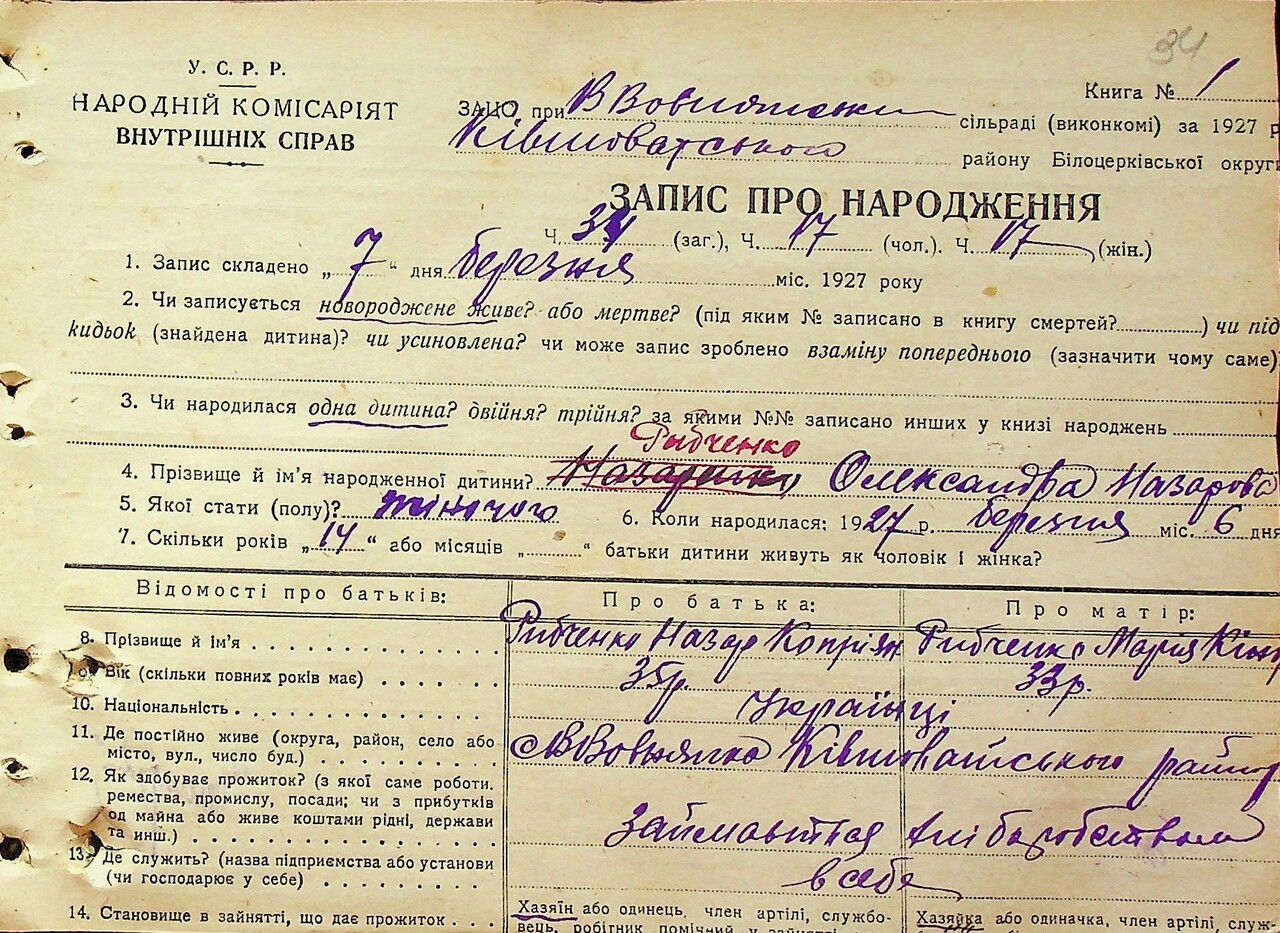 34
У. С. Р. Р.
НАРОДНІЙ КОМІСАРІЯТ
ВНУТРІШНІХ СПРАВ
Книга № 1
ЗАЦО при В Вовнянській сільраді (виконкомі) за 1927 р
Ківшоватського району Білоцерківської округи
ЗАПИС ПРО НАРОДЖЕННЯ
Ч. 34 (заг.), Ч. 17 (чол.). Ч. 17 (жін.)
1. Запис складено „ 7 “ дня березня міс. 1927 року
2. Чи записується новороджене живе? або мертве? (під яким № записано в книгу смертей? ) чи під
кидьок (знайдена дитина)? чи усиновлена? чи може запис зроблено взаміну попереднього (зазначити чому саме)
3. Чи народилася одна дитина? двійня? трійня? за якими №№ записано инших у книзі народжень
Рибченко
4. Прізвище й ім’я народженної дитини? Назаренко Олександра Назарова
5. Якої стати (полу)? жіночого 6. Коли народилась: 1927 р. березня міс. 6 дня
7. Скільки років „ 14 “ або місяців „ “ батьки дитини живуть як чоловік і жінка?
Відомості про батьків: Про батька: Про матір:
8. Прізвище й ім’я Рибченко Назар Копріян Рибченко Марія
9. Вік (скільки повних років має) 35р. 33р.
10. Національність Українці
11. Де постійно живе (округа, район, село або
місто, вул., число буд.) с В Вовнянка Ківшоватського району
12. Як здобуває прожиток? (з якої саме роботи.
ремества, промислу, посади; чи з прибутків
од майна або живе коштами рідні, держави
та инш.) Займається хліборобством
13. Де служить? (назва підприємства або установи
(чи господарює у себе) в себе
14. Становище в зайнятті, що дає прожиток
Хазяїн або одинець, член артілі, службо-
вець, робітник помічний у зайнятті
Хазяйка або одиначка, член артілі, служ-